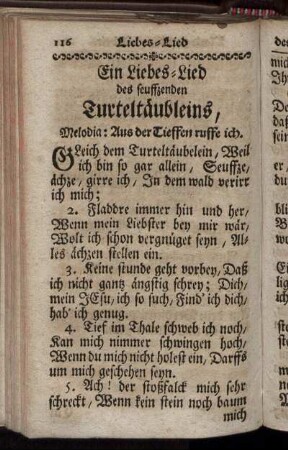 116 Liebes-Lied
Ein Liebes-Lied
des seuffzenden
Turteltäubleins,
Melodia: Aus der Tieffen ruffe ich.
GLeich dem Turteltäubelein, Weil
ich bin so gar allein, Seuffze,
ächze, girre ich, In dem wald verirr
ich mich;
2. Fladdre immer hin und her,
Wenn mein Liebster bey mir wär,
Wolt ich schon vergnüget seyn, Al-
les ächzen stellen ein.
3. Keine stunde geht vorbey, Daß
ich nicht gantz ängstig schrey; Dich,
mein JEsu, ich so such, Find' ich dich,
hab' ich genug.
4. Tief im Thale schweb ich noch,
Kan mich nimmer schwingen hoch,
Wenn du mich nicht holest ein, Darffs
um mich geschehen seyn.
5. Ach! der stoßfalck mich sehr
schreckt, Wenn kein stein noch baum
mich